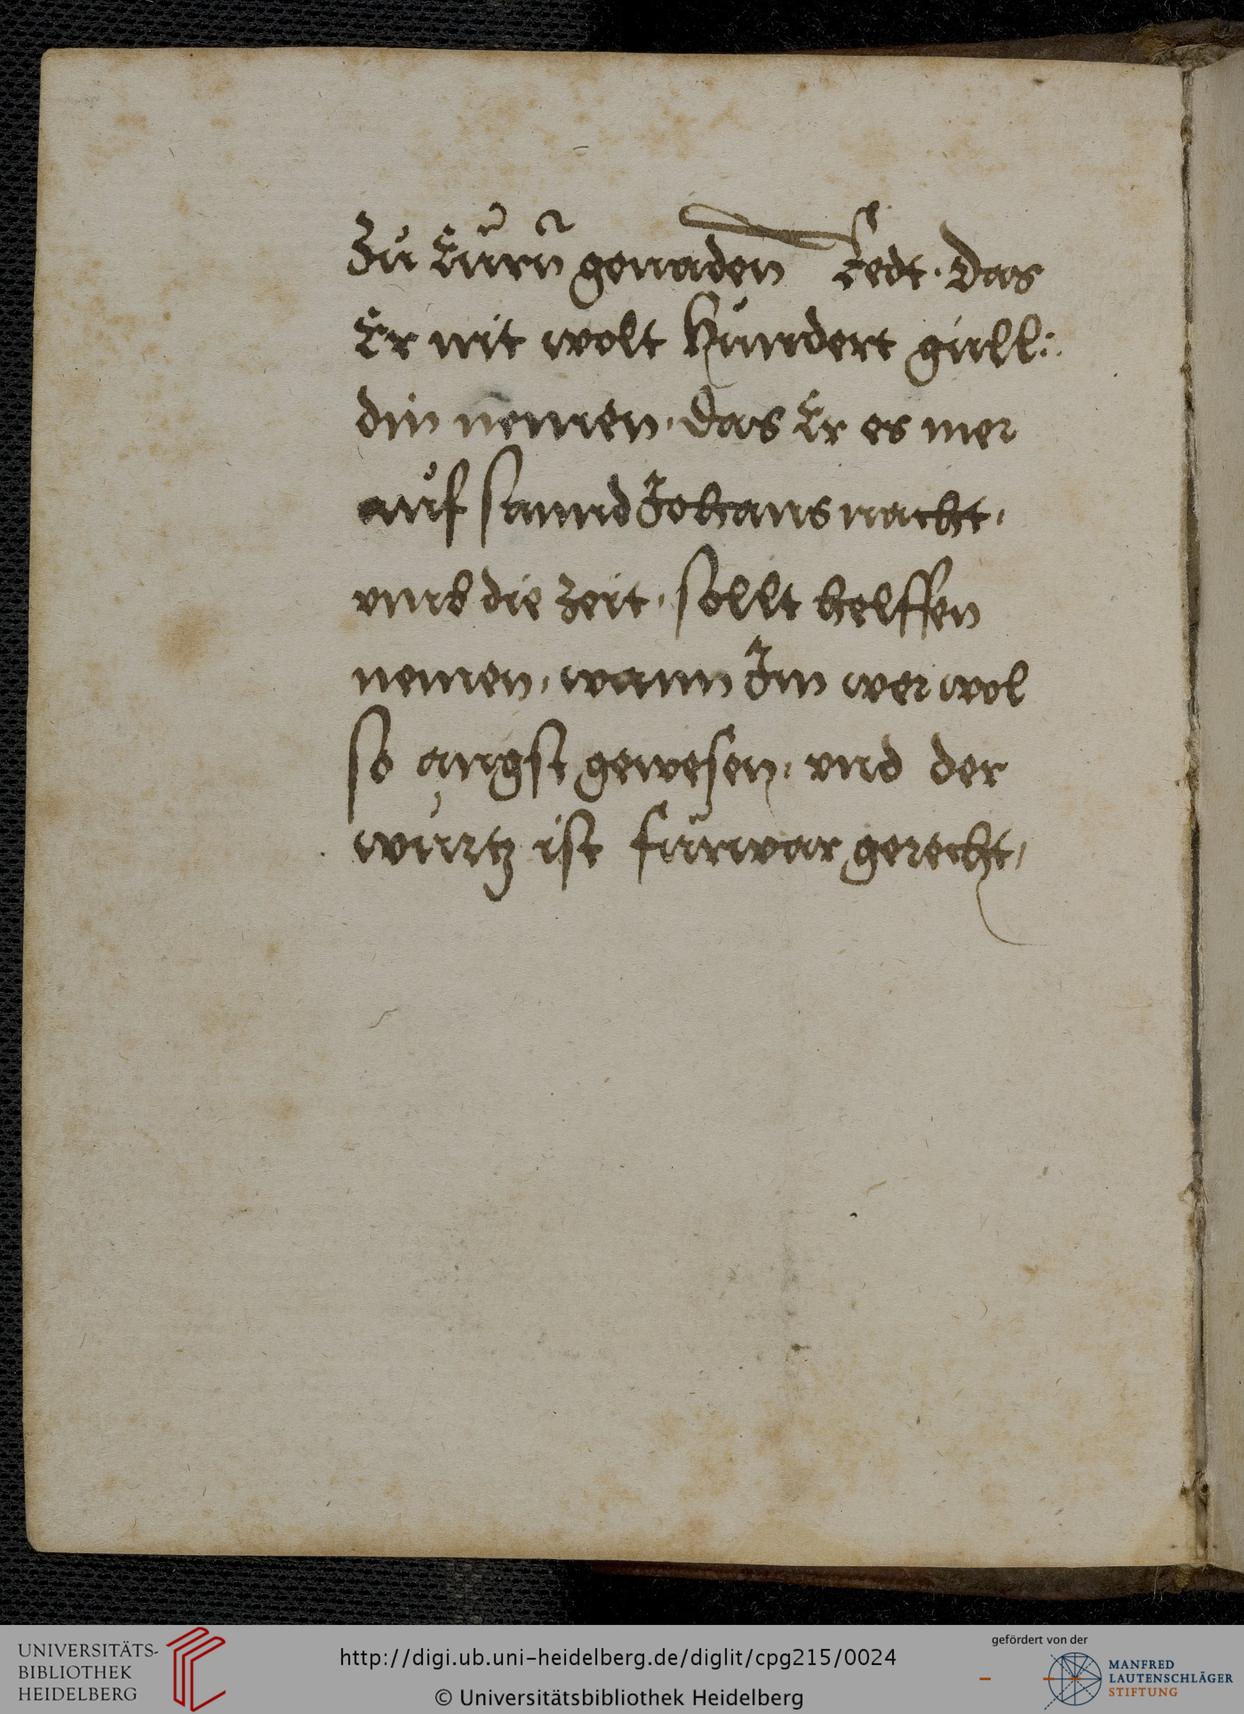 Zu Eurn genaden Redt. das
Er nit wolt hundert gull:
din nemen. das Er es mer
auf sannd Johans nacht,
vmb die zeit. sollt helffen
nemen, wann Im wer wol
so angst gewesen. vnd der
wurtz ist fürwar gerecht,
UNIVERSITÄTS-
BIBLIOTHEK
HEIDELBERG
http://digi.ub.uni-heidelberg.de/diglit/cpg215/0024
© Universitätsbibliothek Heidelberg
gefördert von der
MANFRED
LAUTENSCHLÄGER
STIFTUNG